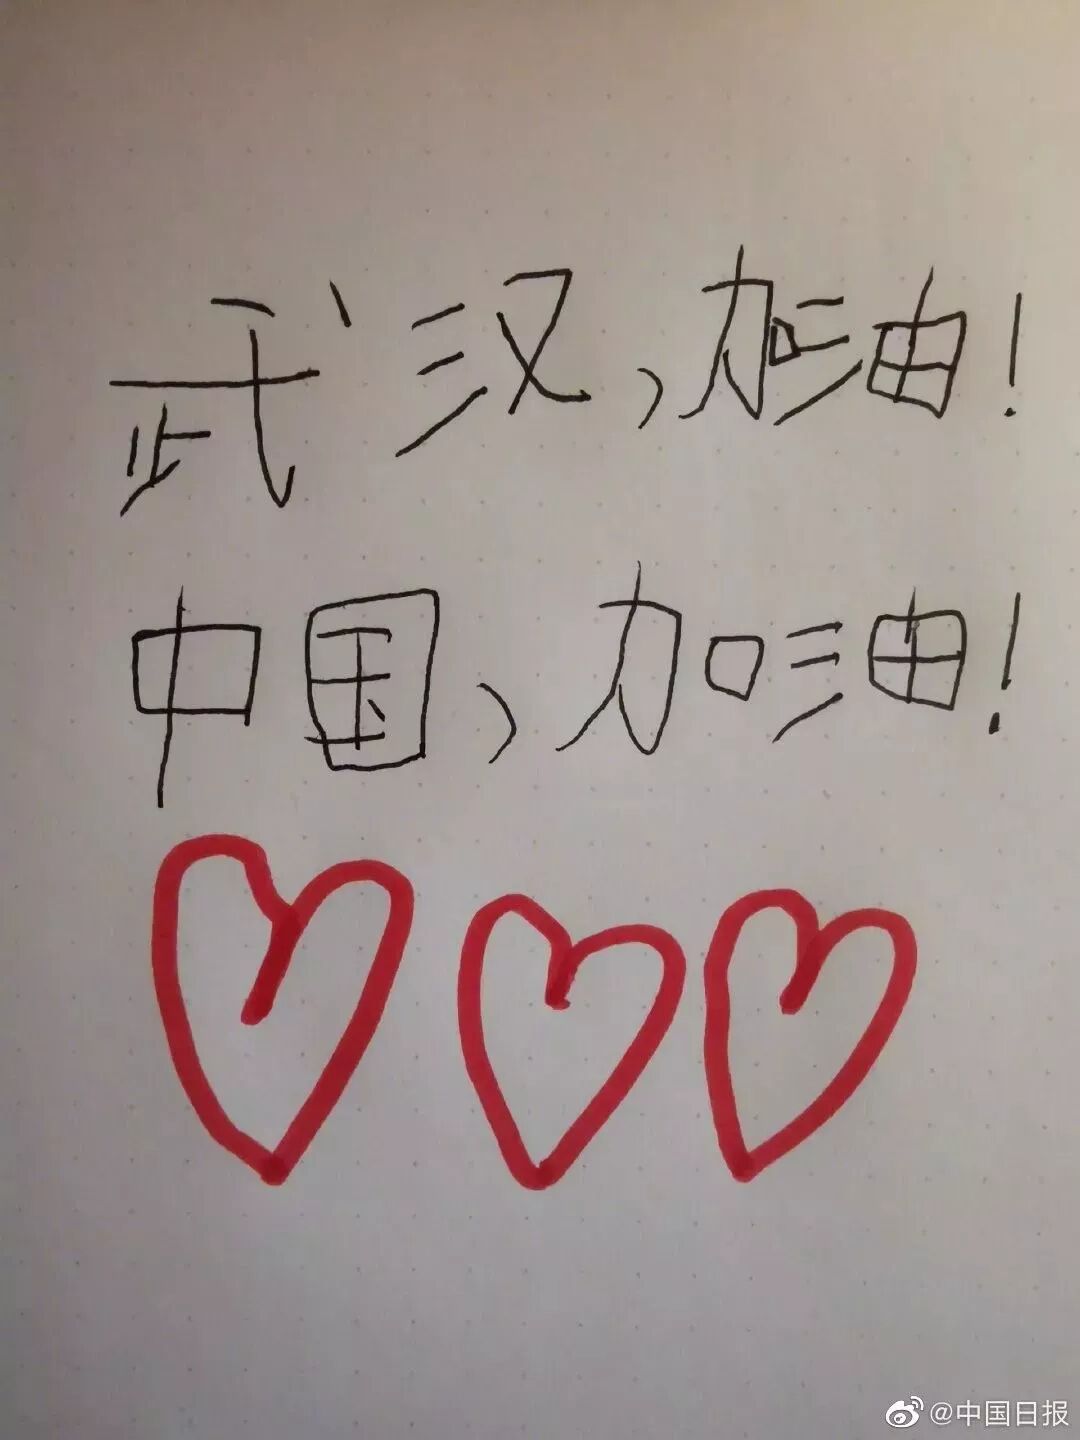 武汉，加油！
中国，加油！
@中国日报